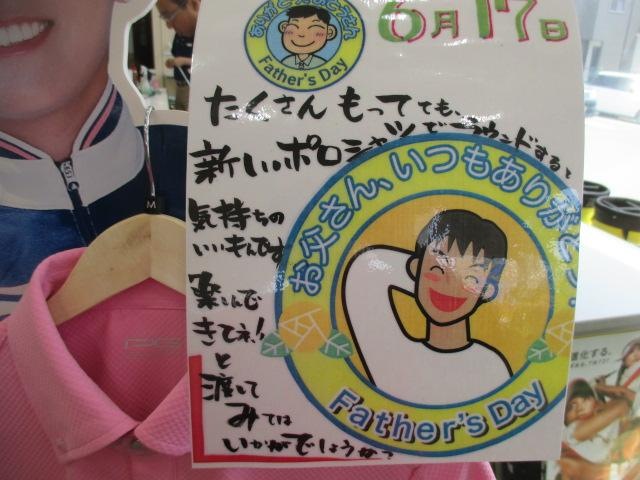 6月17日
ありがとうおとうさん
Father's Day
たくさんもってても、
新しいポロシャツでラウンドすると
気持ちの
いいもんです
楽しんで
きてネ!
と
渡して
みては
いかがでしょうか?
お父さん、いつもありがとう!
Father's Day
M
進化する。